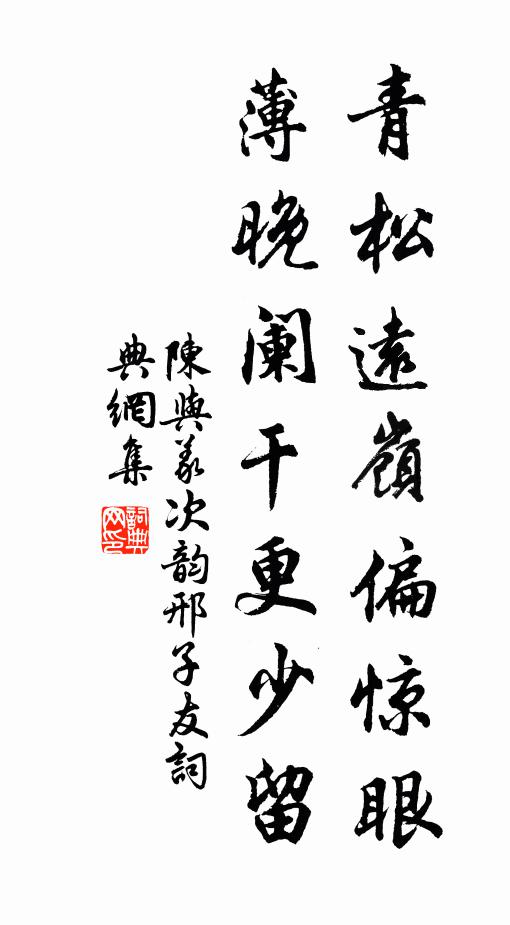 青松遠嶺偏惊眼
薄晚阑干更少留
陳與义次韵邢子友詞
典網集
詞典
网印